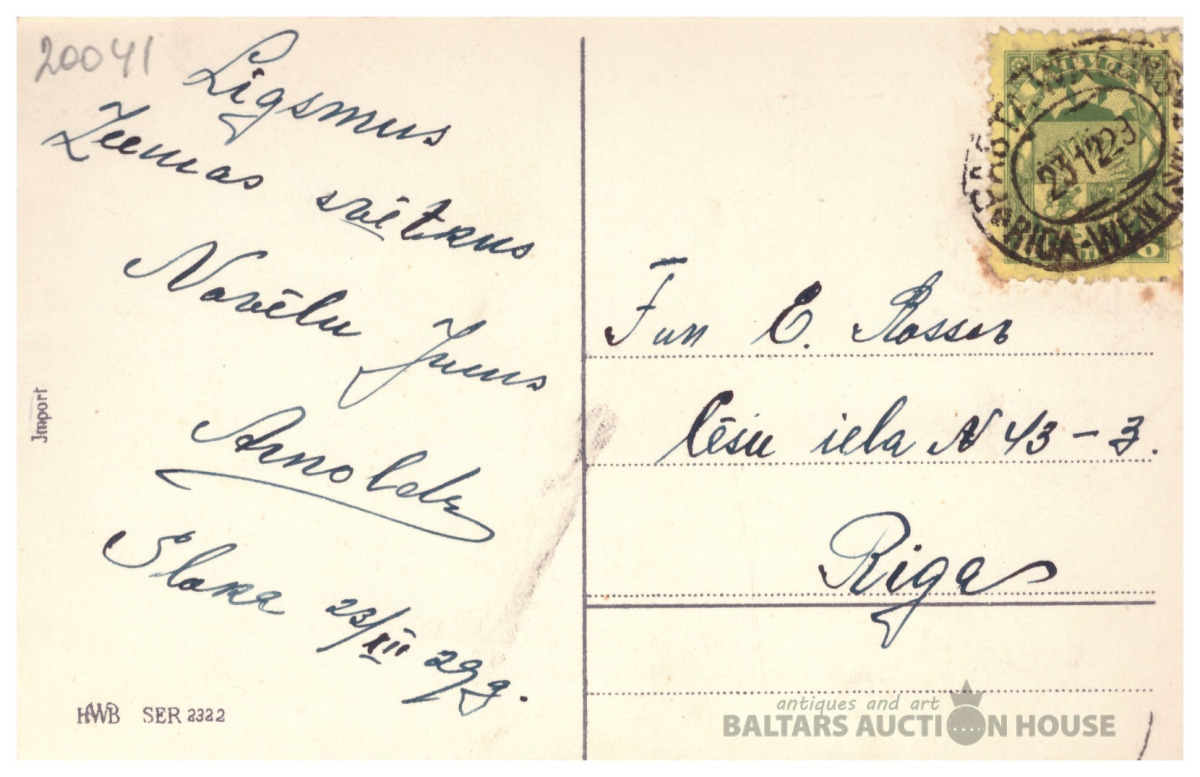 20041
Ligsmus
Zeemas svētkus
Novēlu Jums
Arnolds
Sloka 23/XII 29g.
Import
HWB SER 2322
LATVIJA
23 12 29
RIGA-WENT
6
Jun E. Rosser
Cēsu iela N 43-3.
Riga
antiques and art
BALTARS AUCTION HOUSE